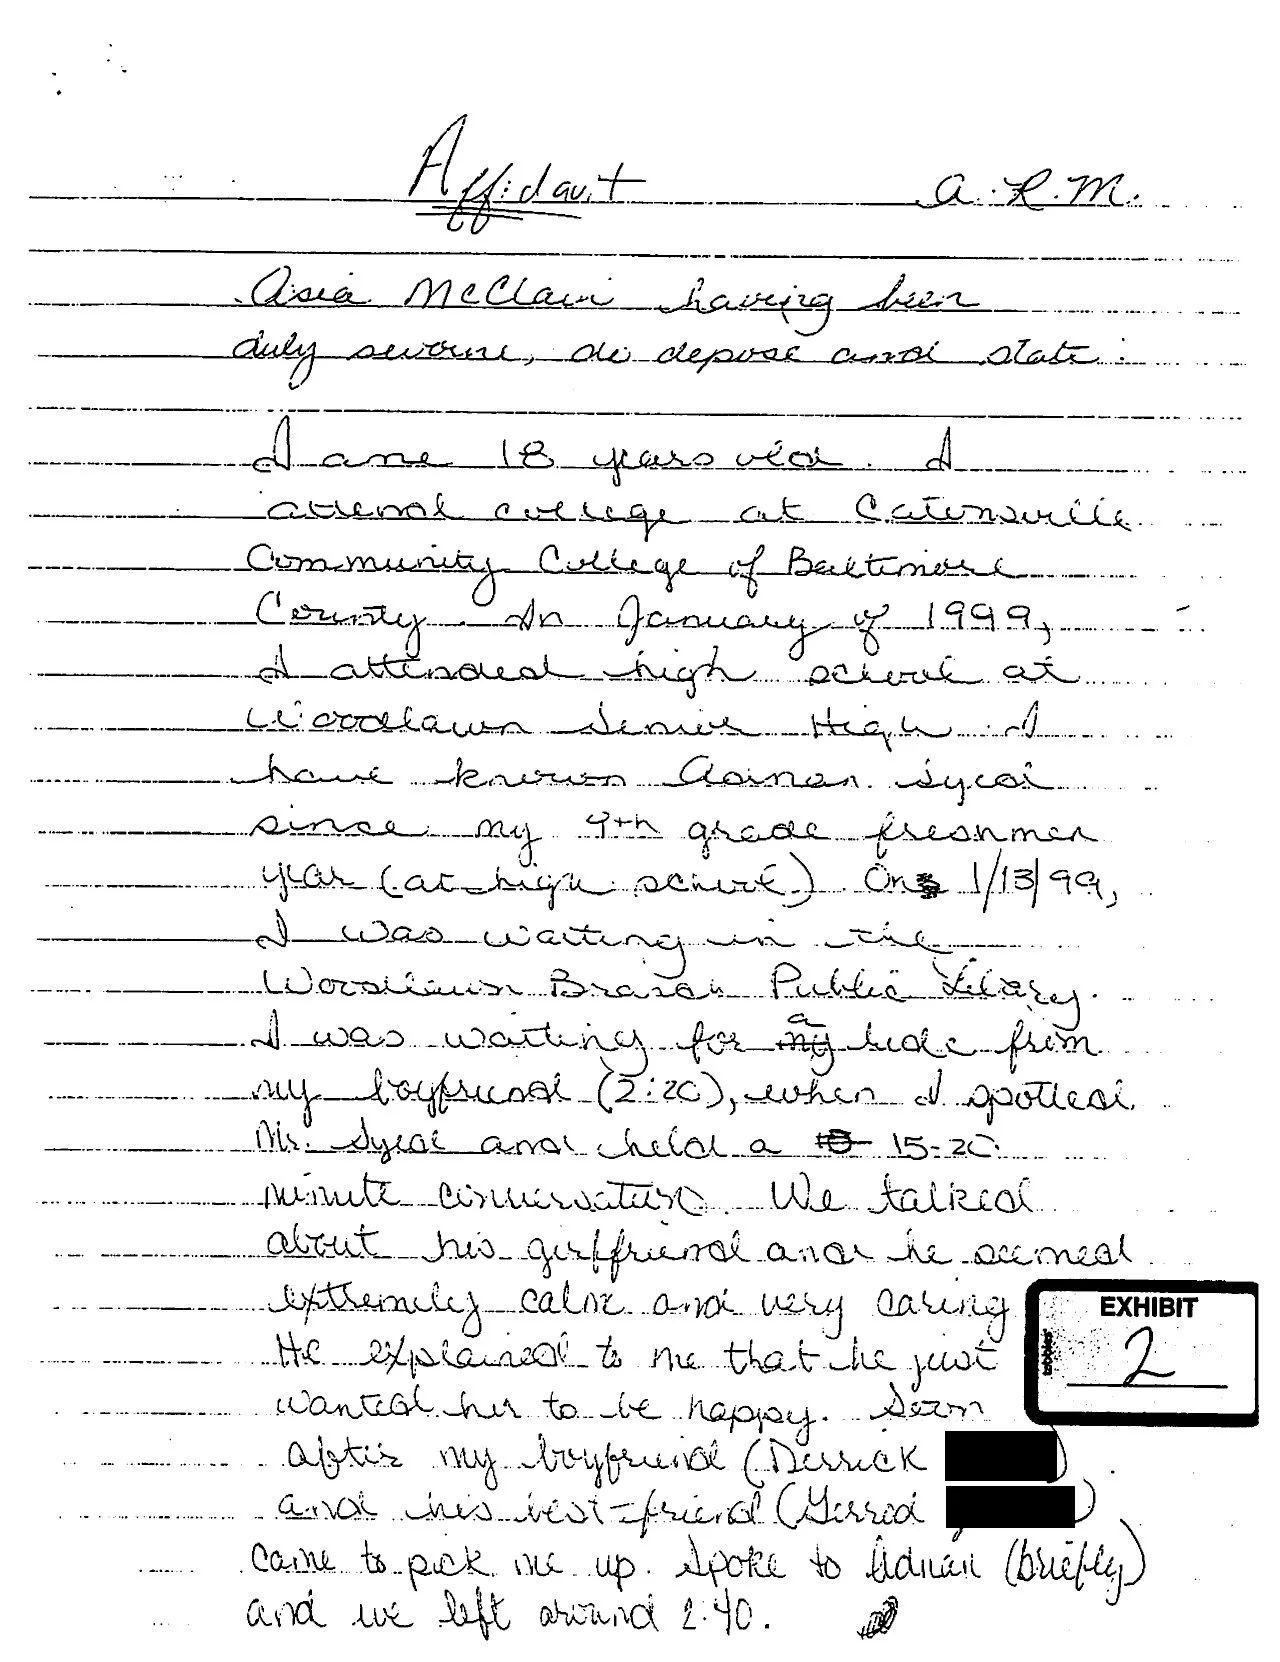 Affidavit A.R.M.
Asia McClain having been
duly sworne, do depose and state:
I am 18 years old. I
attend college at Catonsville
Community College of Baltimore
County. In January of 1999,
I attended high school at
Woodlawn Senior High. I
have known Adnan Syed
since my 9th grade freshmen
year (at high school). On 1/13/99,
I was waiting in the
Woodlawn Branch Public Library.
I was waiting for a ride from
my boyfriend (2:20), when I spotted
Mr. Syed and held a 15-20
minute conversation. We talked
about his girlfriend and he seemed
extremely calm and very caring
He explained to me that he just
wanted her to be happy. Soon
after my boyfriend (Derrick
and his best-friend (Gerrod
came to pick me up. Spoke to Adnan (briefly)
and we left around 2:40.
EXHIBIT
2